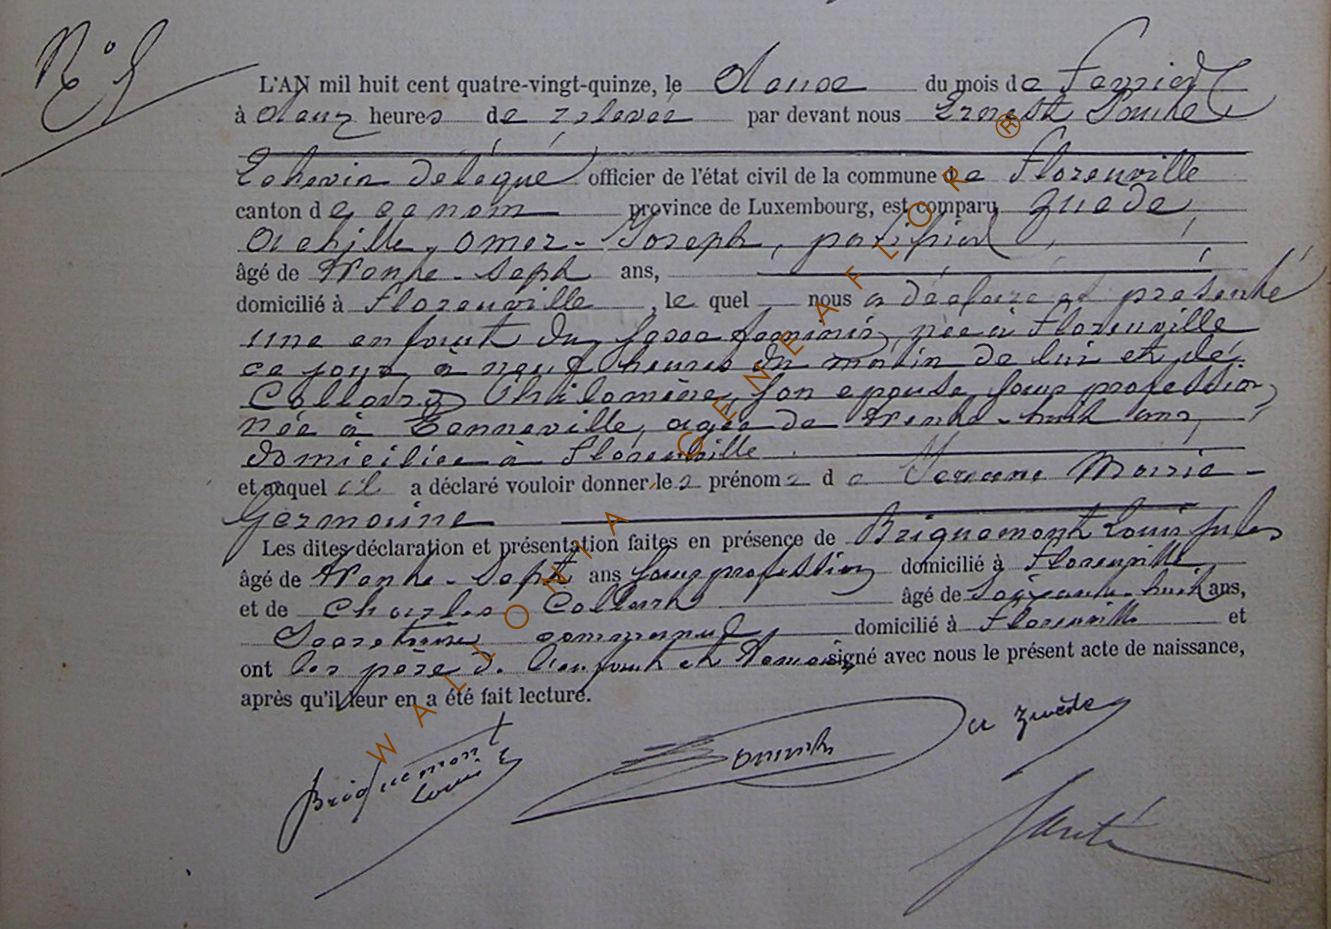 N° 5
L'AN mil huit cent quatre-vingt-quinze, le douse du mois de fevrier
à deux heures de relevée par devant nous Ernest
Echevin délégué officier de l'état civil de la commune de Florenville
canton de canom province de Luxembourg, est comparu Zuede,
Achille, Omer-Joseph,
âgé de trente-sept ans,
domicilié à Florenville, le quel nous a déclaré et présenté
une enfant du sexe feminin, née à Florenville
ce jour à neuf heures du matin de lui et de
Philomène, son epouse sans profession,
née à Tenneville, agée de trente-huit ans,
domiciliée à Florenville.
et auquel il a déclaré vouloir donner les prénoms de Marie-
Germaine
Les dites déclaration et présentation faites en présence de Briquemont Louis Jules
âgé de trente-sept ans sans profession domicilié à Florenville
et de Charles Collard âgé de Soixante-huit ans,
Secretaire communal domicilié à Florenville et
ont les père de l'enfant et temoins signé avec nous le présent acte de naissance,
après qu'il leur en a été fait lecture.
Briquemont
Louis
a Zuède
WALLONIA - GENEAFLOR ®